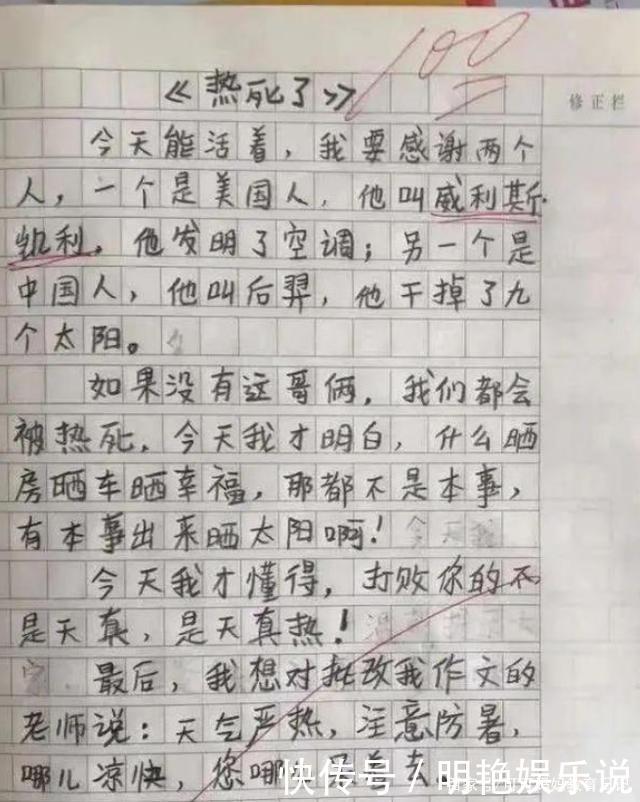 100
《热死了》
修正栏
今天能活着，我要感谢两个
人，一个是美国人，他叫威利斯·
凯利，他发明了空调；另一个是
中国人，他叫后羿，他干掉了九
个太阳。
如果没有这哥俩，我们都会
被热死，今天我才明白，什么晒
房晒车晒幸福，那都不是本事，
有本事出来晒太阳啊！
今天我才懂得，打败你的不
是天真，是天真热！
最后，我想对批改我作文的
老师说：天气严热，注意防暑，
哪儿凉快，您哪
快传号/明艳娱乐说